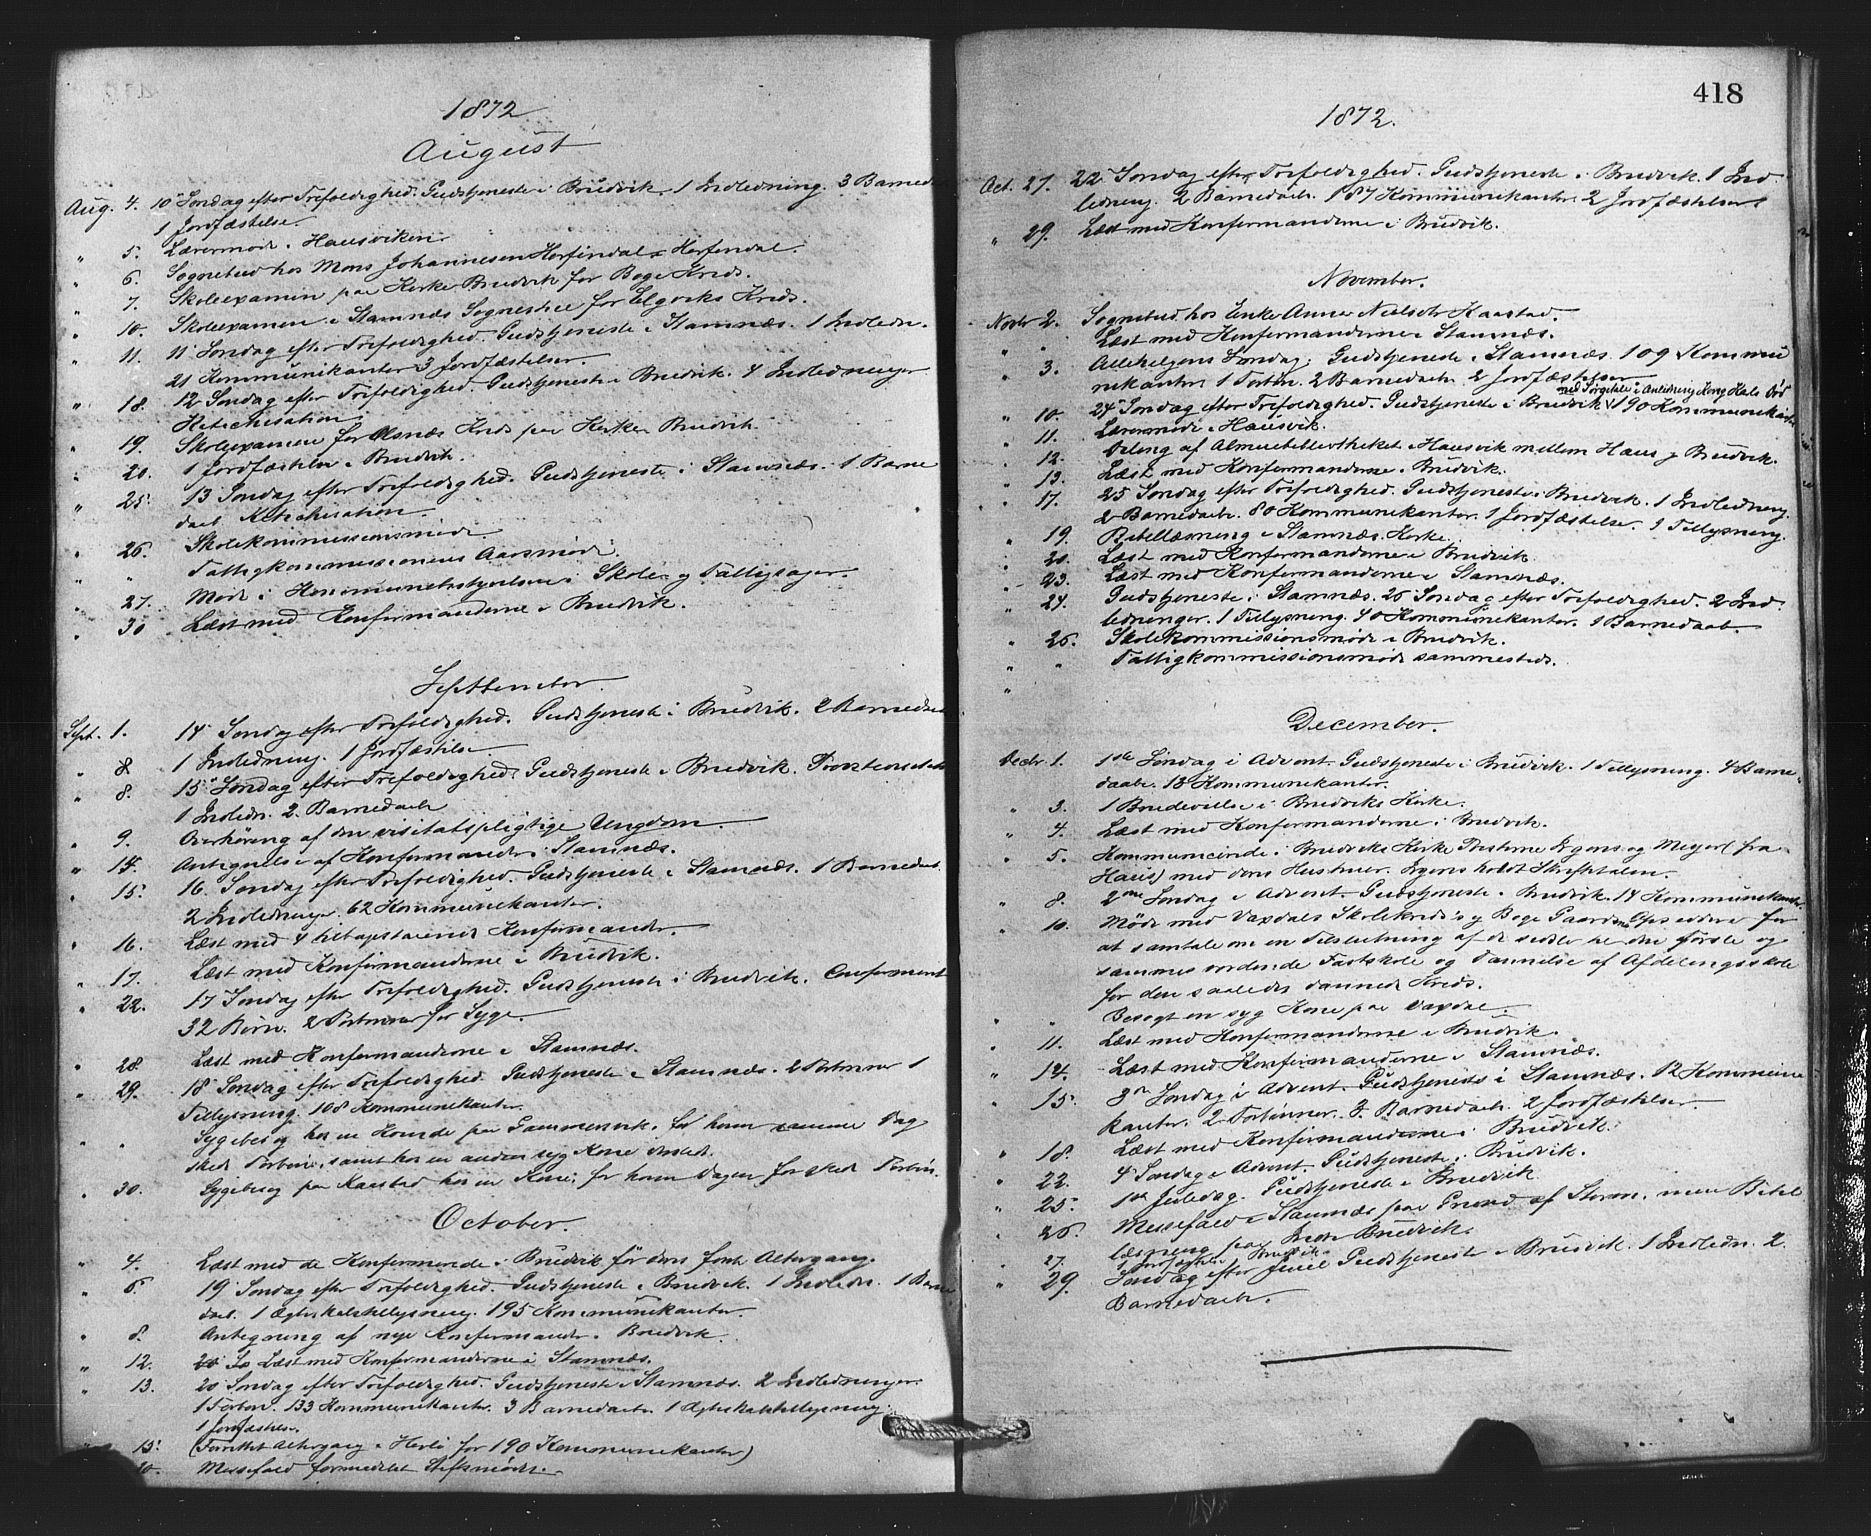 1872
August
Aug. 4. 10 Søndag efter Trefoldighed. Gudstjeneste i Bruvik 1 Indledning. 3 Barned
1 Jordfæstelse.
" 5. Lærermøde i Hausviken
" 6. Sognebud hos Mons Johannesen Herfindal Herfindal.
" 7. Skoleexamen paa Kirke Bruvik for Boge Kreds.
" 10. Skoleexamen i Stamnæs Sognestue for Kreds.
" 11. 11 Søndag efter Trefoldighed. Gudstjeneste i Stamnæs. 1 Indledn.
21 Kommunikanter 3 Jordfæstelser.
" 18. 12 Søndag efter Trefoldighed. Gudstjeneste i Brudvik. 4 Indledninger
Katechisation
" 19. Skoleexamen for Kreds paa Kirke Brudvik
" 20. 1 Jordfæstelse i Brudvik.
" 25. 13 Søndag efter Trefoldighed. Gudstjeneste i Stamnæs. 1 Barne
daab Katechisation.
" 26. Skolekommissionsmøde.
" " Fattigkommissionens Aarsmøde.
" 27. Møde i Kommunebestyrelsen i Skole og Fattigsager.
" 30 Læst med Konfirmanderne i Brudvik.
September.
Sept. 1. 14 Søndag efter Trefoldighed. Gudstjeneste i Brudvik. 2 Barnedaab
1 Indledning. 1 Jordfæstelse
" 8
" 8. 15 Søndag efter Trefoldighed. Gudstjeneste i Brudvik.
1 Indledn. 2. Barnedaab
" 9. Overhøring af den visitatspligtige Ungdom.
" 14. Antegnelse af Konfirmander i Stamnæs.
" 15. 16. Søndag efter Trefoldighed. Gudstjeneste i Stamnæs. 1 Barnedaab
2 Indledninger 62 Kommunikanter.
" 16. Læst med 4 Konfirmander.
" 17. Læst med Konfirmanderne i Brudvik.
" 22. 17 Søndag efter Trefoldighed. Gudstjeneste i Brudvik. Confirmeret
32 Børn. 2 for Syge.
" 28. Læst med Konfirmanderne i Stamnæs.
" 29. 18 Søndag efter Trefoldighed. Gudstjeneste i Stamnæs. 2 1
Tillysning. 108 Kommunikanter
" " Sygebesøg hos en paa Gammersvik. for ham samme Dag
skede Forbøn, samt hos en anden syg Kone
" 30. Sygebesøg paa Kaastad hos en Kone, for hvem Dagen før skede Forbøn.
October.
" 4. Læst med de Konfirmerede i Brudvik før deres første Altergang.
" 6. 19 Søndag efter Trefoldighed. Gudstjeneste i Brudvik. 1 Indledn. 1 Barne
daab. 1 Ægteskabstillysning. 195 Kommunikanter
" 8. Antegning af nye Konfirmander i Brudvik.
" 12. Læst med Konfirmanderne i Stamnæs.
" 13. 20 Søndag efter Trefoldighed. Gudstjeneste i Stamnæs. 2 Indledninger.
1 Forbøn. 133 Kommunikanter. 3 Barnedaab. 1 Ægteskabstillysning.
1 Jordfæstelse.
" 15. (Forrettet Altergang i Herlø for 190 Kommunikanter)
20. Messefald formedelst Stiftsmøde.
418
1872.
Oct. 27. 22 Søndag efter Trefoldighed. Gudstjeneste i Brudvik. 1 Ind
ledning. 2 Barnedaab. 187 Kommunikanter. 2 Jordfæstelser
" 29. Læst med Konfirmanderne i Brudvik.
November.
Novbr 2. Sognebud hos Enke Anna Nielsdtr Kaastad.
" " Læst med Konfirmanderne i Stamnæs.
" 3. Allehelgens Søndag. Gudstjeneste i Stamnæs. 109 Kommu
nikanter 1 Forbøn. 2 Barnedaab 2 Jordfæstelser
med Sørgetale i Anledning Kong Karls Død
" 10. 24 Søndag efter Trefoldighed. Gudstjeneste i Brudvik 190 Kommunikanter
" 11. Lærermøde i Hausvik.
" 12. Deling af Almuebibliotheket i Hausvik mellem Haus og Brudvik.
" 13. Læst med Konfirmanderne i Brudvik.
" 17. 25 Søndag efter Trefoldighed. Gudstjeneste i Brudvik. 1 Indledning.
2 Barnedaab. 80 Kommunikanter. 1 Jordfæstelse. 1 Tillysning.
" 19. Bibellæsning i Stamnæs Kirke.
" 20. Læst med Konfirmanderne i Brudvik.
" 23. Læst med Konfirmanderne i Stamnæs.
" 24. Gudstjeneste i Stamnæs. 26 Søndag efter Trefoldighed. 2 Ind
ledninger. 1 Tillysning. 40 Kommunikanter. 1 Barnedaab.
" 26. Skolekommissionsmøde i Brudvik.
" " Fattigkommissionsmøde sammesteds.
"
December.
Decbr 1. 1ste Søndag i Advent Gudstjeneste i Brudvik. 1 Tillysning. 4 Barne-
daab. 13 Kommunikanter.
" 3. 1 Brudevielse i Brudviks Kirke.
" 4. Læst med Konfirmanderne i Brudvik.
" 5. Kommunicerede i Brudviks Kirke Presterne Irgens og Meyer (fra
Haus) med deres Hustruer. Irgens holdt Skriftetalen.
" 8. 2den Søndag i Advent Gudstjeneste i Brudvik. 14 Kommunikanter
" 10. Møde med Vaxdals Skolekreds og Boge Gaardenes Opsiddere for
at samtale om en Tilslutning af de sidste til den første og
sammes vordende Fastskole og Dannelse af Afdelingsskole
for den saaledes dannede Kreds.
" " Besøgt en syg Kone paa Vaxdal.
" 11. Læst med Konfirmanderne i Brudvik.
" 14. Læst med Konfirmanderne i Stamnæs.
" 15. 3die Søndag i Advent Gudstjeneste i Stamnæs. 12 Kommuni
kanter. 2 Forbønner. 3 Barnedaab. 2 Jordfæstelser.
" 18. Læst med Konfirmanderne i Brudvik.
" 22. 4 Søndag i Advent. Gudstjeneste i Brudvik.
" 25. 1ste Juledag. Gudstjeneste i Brudvik
" 26. Messefald i Stamnæs paa Grund af Storm, men Bibel
læsning paa Brudvik.
" 27. 1 Jordfæstelse i Brudvik
" 29. Søndag efter Juul Gudstjeneste i Brudvik. 1 Indledn. 2
Barnedaab.